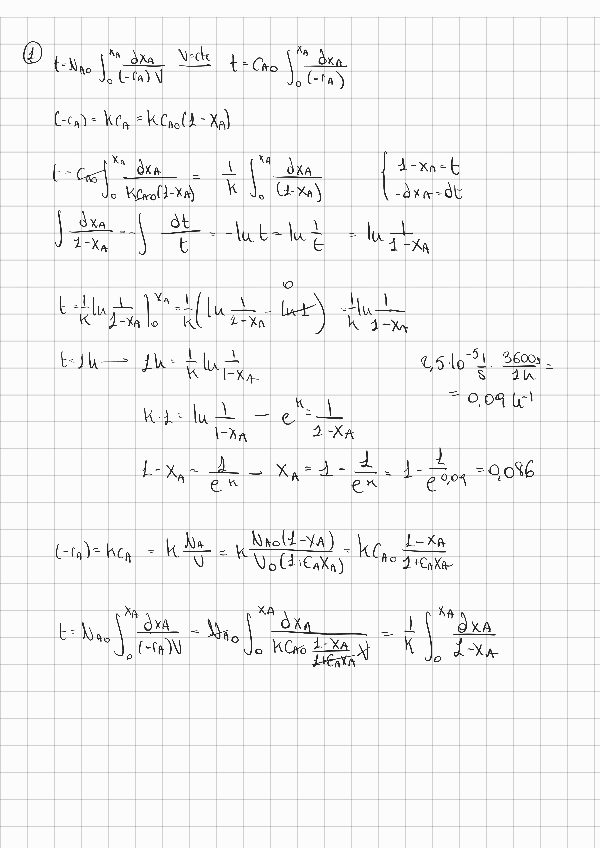 ① t = N_A0 ∫_0^{x_A} dx_A / ((-r_A) V) V=cte t = C_A0 ∫_0^{x_A} dx_A / (-r_A)
(-r_A) = K C_A = K C_A0 (1 - X_A)
t = C_A0 ∫_0^{x_A} dx_A / (K C_A0 (1-X_A)) = 1/K ∫_0^{x_A} dx_A / (1-X_A) { 1-x_A = t
-dx_A = dt
∫ dx_A / (1-x_A) = - ∫ dt/t = -ln t = ln 1/t = ln 1/(1-X_A)
t = 1/K ln 1/(1-X_A) ]_0^{X_A} = 1/K ( ln 1/(1-X_A) - ln 1 ) 0 = 1/K ln 1/(1-X_A)
t = 1h → 1h = 1/K ln 1/(1-X_A) 2,5·10^{-5} 1/s · 3600s/1h =
= 0,09 h^{-1}
K·1 = ln 1/(1-X_A) — e^K = 1/(1-X_A)
1 - X_A = 1/e^K — X_A = 1 - 1/e^K = 1 - 1/e^{0,09} = 0,086
(-r_A) = K C_A = K N_A/V = K N_A0 (1-X_A) / (V_0 (1+ε_A X_A)) = K C_A0 (1-X_A)/(1+ε_A X_A)
t = N_A0 ∫_0^{x_A} dx_A / ((-r_A) V) = N_A0 ∫_0^{X_A} dx_A / (K C_A0 (1-X_A)/(1+ε_A X_A) V) = 1/K ∫_0^{X_A} dx_A / (1-X_A)